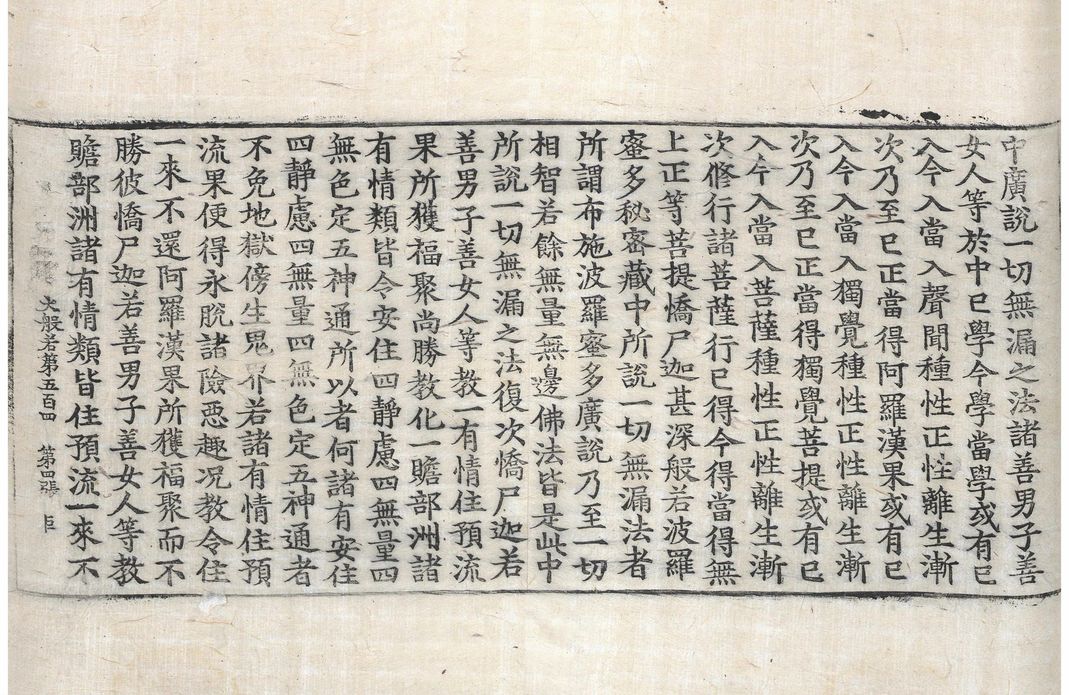 中廣說一切無漏之法諸善男子善
女人等於中已學今學當學或有已
入今入當入聲聞種性正性離生漸
次乃至已正當得阿羅漢果或有已
入今入當入獨覺種性正性離生漸
次乃至已正當得獨覺菩提或有已
入今入當入菩薩種性正性離生漸
次修行諸菩薩行已得今得當得無
上正等菩提憍尸迦甚深般若波羅
蜜多秘密藏中所說一切無漏法者
所謂布施波羅蜜多廣說乃至一切
相智若餘無量無邊佛法皆是此中
所說一切無漏之法復次憍尸迦若
善男子善女人等教一有情住預流
果所獲福聚尚勝教化一贍部洲諸
有情類皆令安住四靜慮四無量四
無色定五神通所以者何諸有安住
四靜慮四無量四無色定五神通者
不免地獄傍生鬼界若諸有情住預
流果使得永脫諸險惡趣况教令住
一來不還阿羅漢果所獲福聚而不
勝彼憍尸迦若善男子善女人等教
贍部洲諸有情類皆住預流一來不
大般若第五百四 第四張 巨